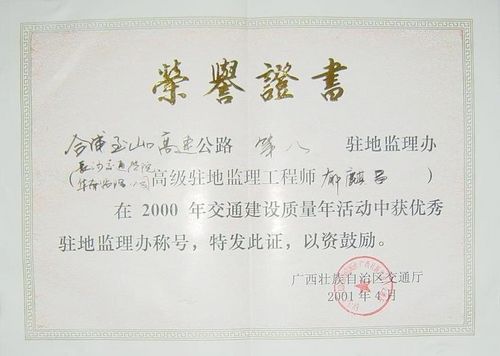 榮譽證書
合浦至山口高速公路 第八 驻地监理办
(长沙交通学院
高级驻地监理工程师 )
在 2000 年交通建设质量年活动中获优秀
驻地监理办称号，特发此证，以资鼓励。
广西壮族自治区交通厅
2001 年 4 月